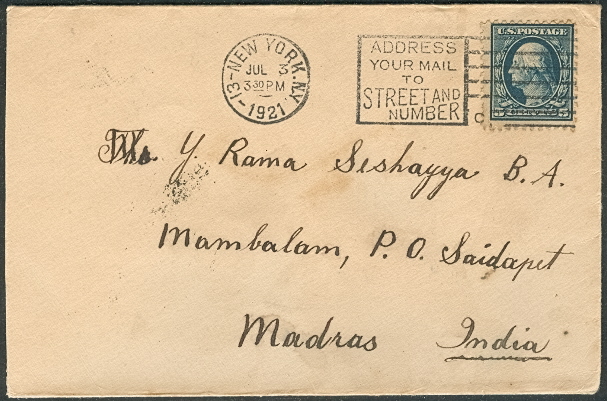 -NEW YORK, N.Y.
JUL 3
3 30 PM
-13-
1921
ADDRESS
YOUR MAIL
TO
STREET AND
NUMBER
U.S. POSTAGE
5
5
Y Rama Seshayya B. A.
Mambalam, P. O. Saidapet
Madras India